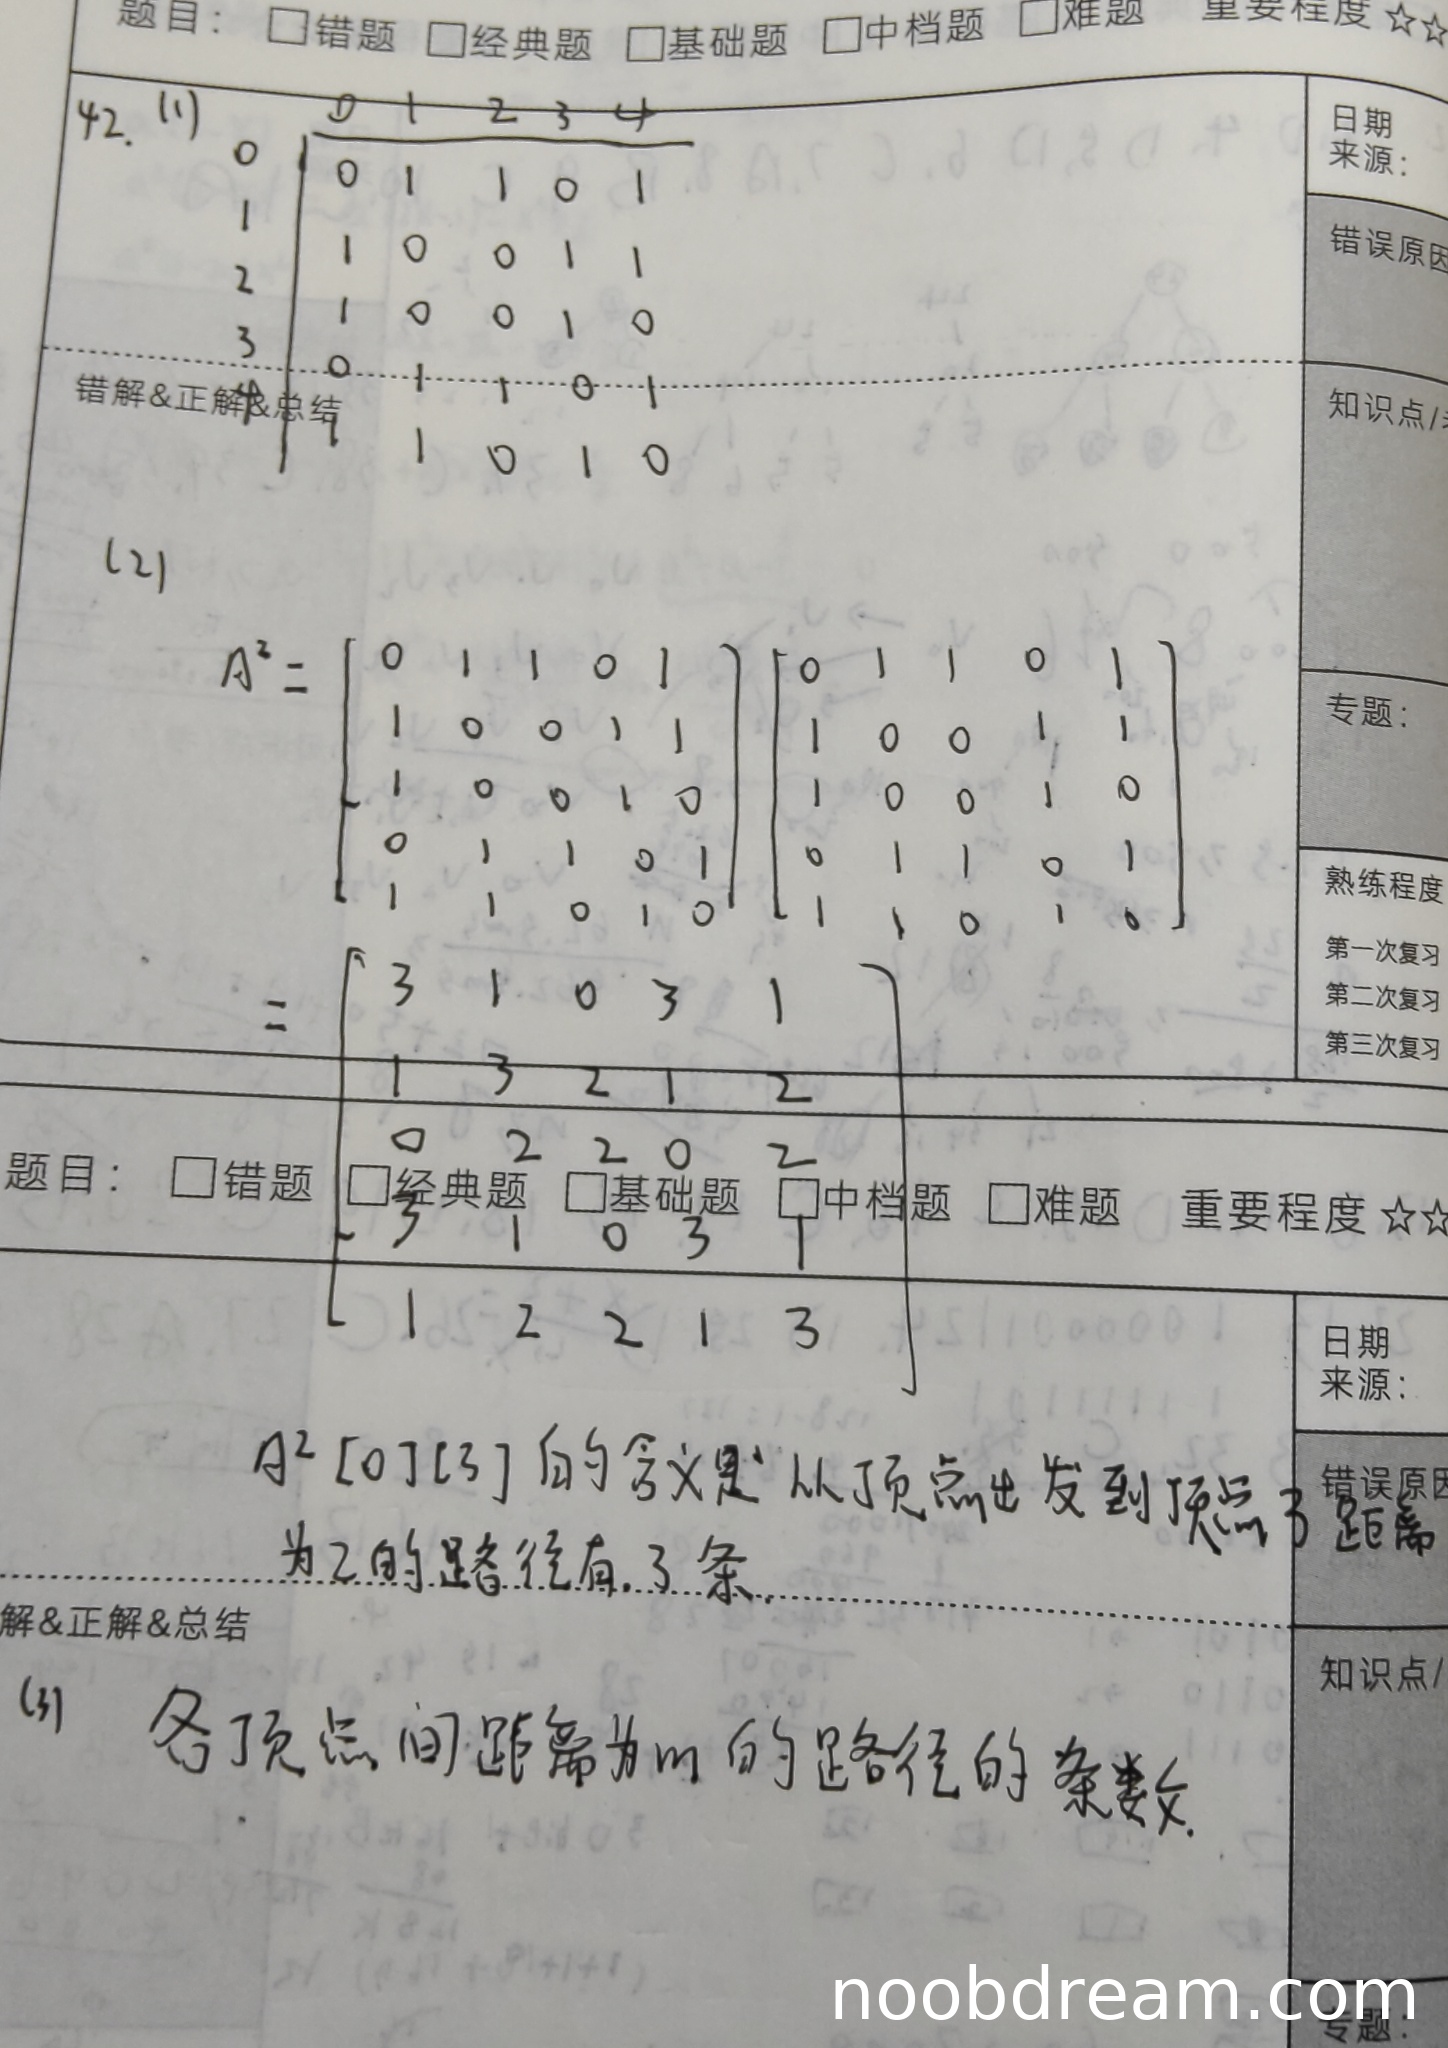 题目： □错题 □经典题 □基础题 □中档题 □难题 重要程度 ☆☆
日期
来源：
42. (1)
0 1 2 3 4
0 0 1 1 0 1
1 1 0 0 1 1
2 1 0 0 1 0
3 0 1 1 0 1
4 1 1 0 1 0
错误原因
错解&正解&总结
知识点/
(2)
A² = [ 0 1 1 0 1 ] [ 0 1 1 0 1 ]
1 0 0 1 1 1 0 0 1 1
1 0 0 1 0 1 0 0 1 0
0 1 1 0 1 0 1 1 0 1
1 1 0 1 0 1 1 0 1 0
专题：
熟练程度
第一次复习
第二次复习
第三次复习
= [ 3 1 0 3 1
1 3 2 1 2
0 2 2 0 2
3 1 0 3 1
1 2 2 1 3 ]
题目： □错题 □经典题 □基础题 □中档题 □难题 重要程度 ☆☆
日期
来源：
A² [0][3] 的含义是 从顶点出发到顶点 3 距离
为2的路径有 3 条.
错误原因
解&正解&总结
知识点/
(3) 各顶点间距离为m的路径的条数.
专题：
noobdream.com